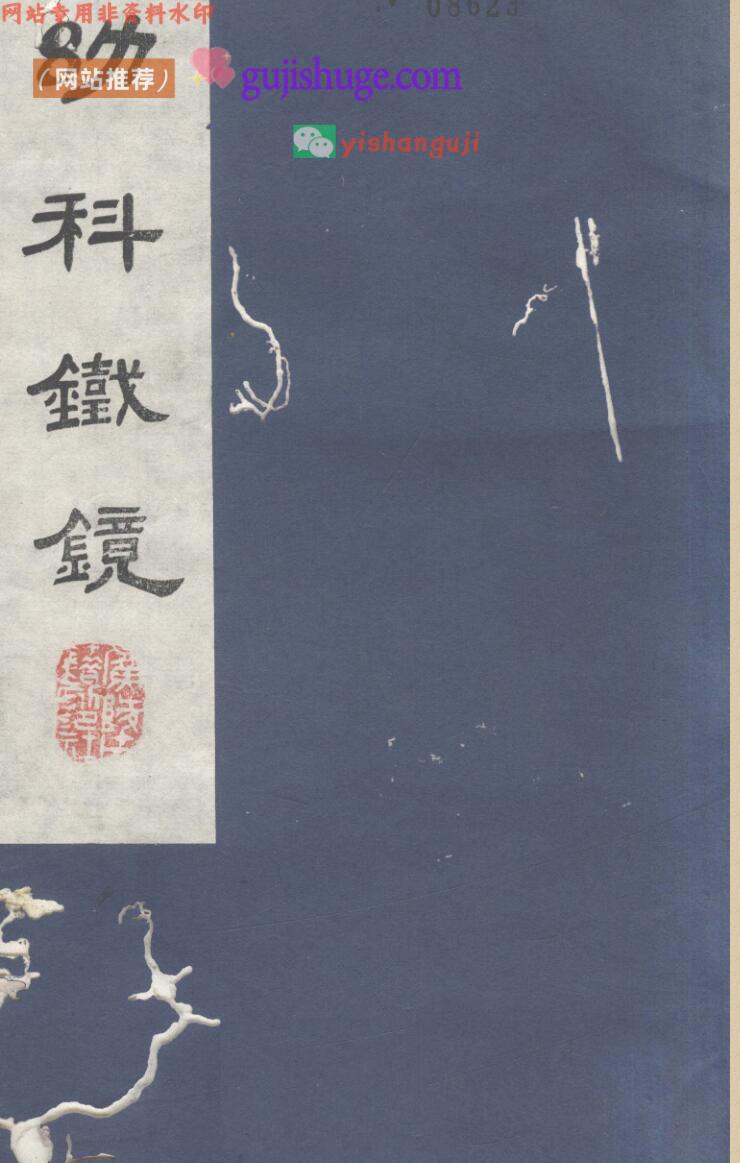 网站专用非资料水印
08623
（网站推荐）
gujishuge.com
yishanguji
幼
科
鐵
鏡